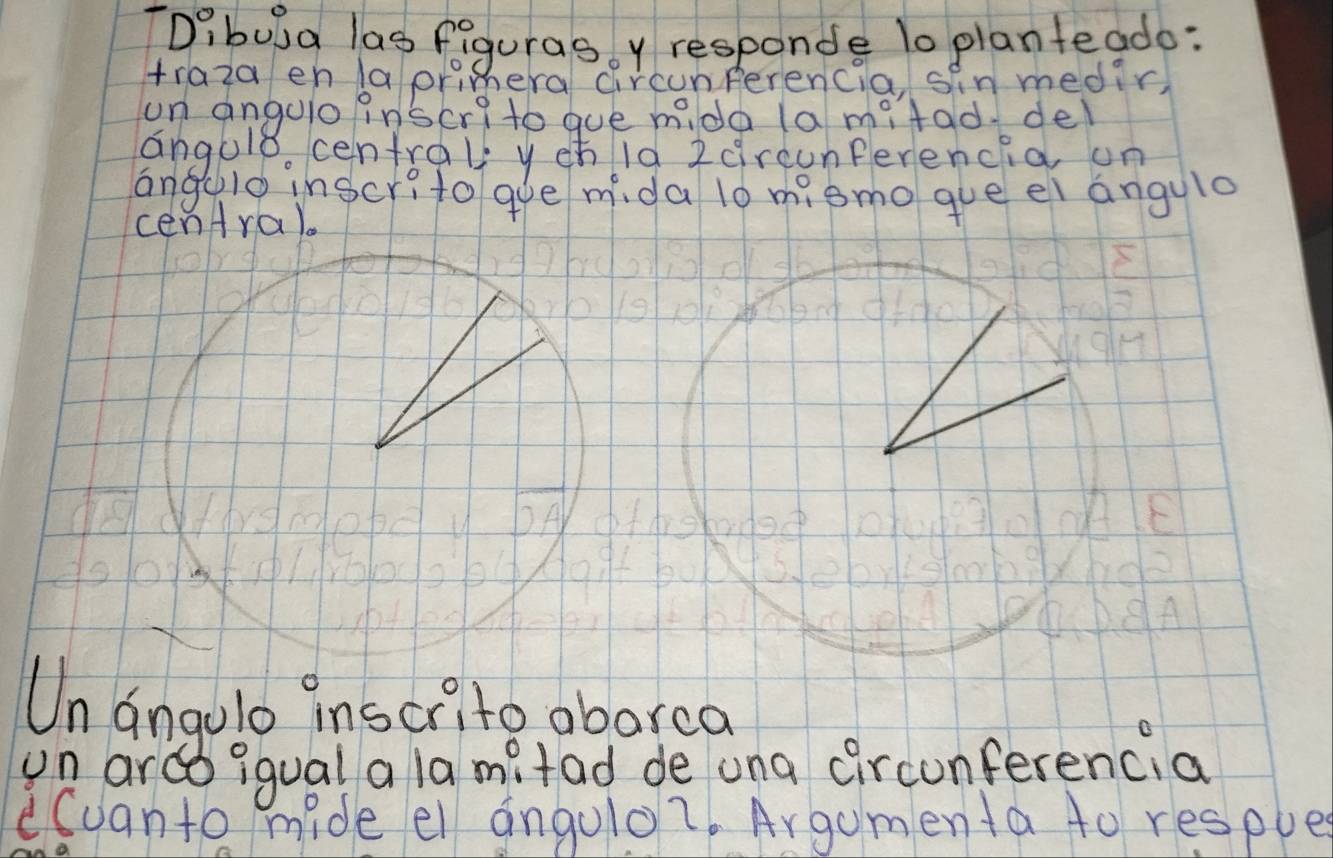 Dibuja las figuras y responde lo planteado:
traza en la primera circunferencia, sin medir,
un angulo inscrito que mida la mitad del
ángulo central y en la 2 circunferencia un
ángulo inscrito que mida lo mismo que el ángulo
central.
Un ángulo inscrito abarca
un arco igual a la mitad de una circunferencia
¿Cuanto mide el ángulo?. Argumenta tu respues